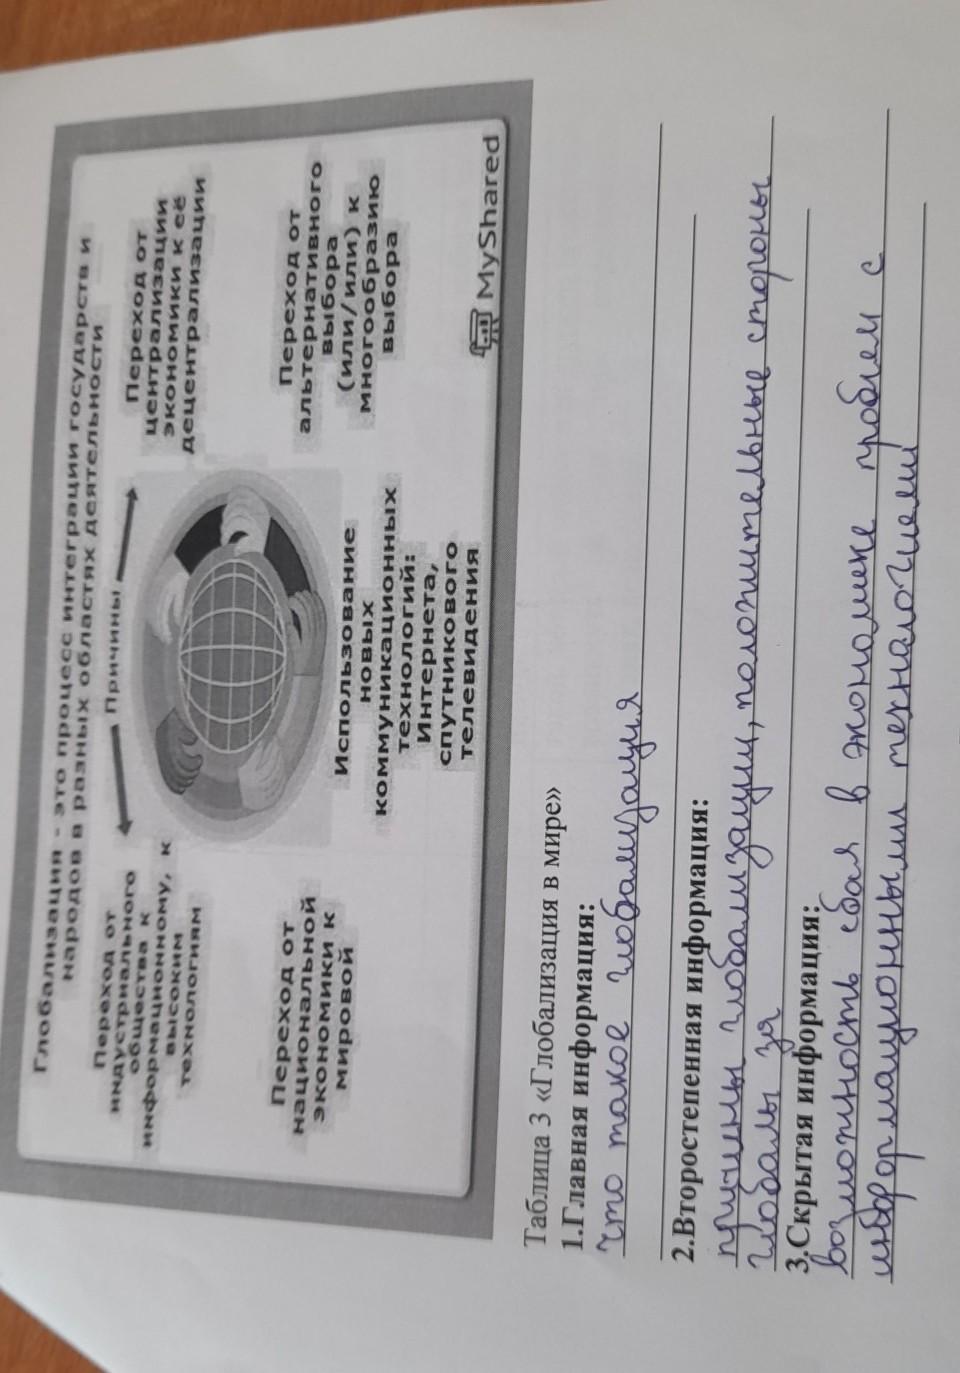 Глобализация - это процесс интеграции государств и
народов в разных областях деятельности
Причины
Переход от
индустриального
общества к
информационному, к
высоким
технологиям
Переход от
централизации
экономики к её
децентрализации
Переход от
национальной
экономики к
мировой
Использование
новых
коммуникационных
технологий:
Интернета,
спутникового
телевидения
Переход от
альтернативного
выбора
(или/или) к
многообразию
выбора
MyShared
Таблица 3 «Глобализация в мире»
1.Главная информация:
что такое глобализация
2.Второстепенная информация:
причины глобализации, положительные стороны
глобалы зя
3.Скрытая информация:
возможность сбоя в экономике проблем с
информационными технологиеми